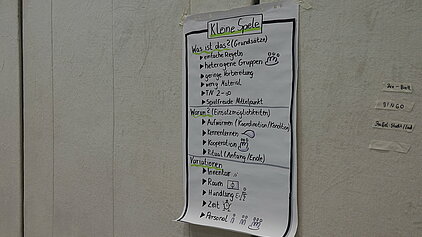 Kleine Spiele
Was ist das? (Grundsätze)
einfache Regeln
heterogene Gruppen
geringe Vorbereitung
wenig Material
TN 2-∞
Spielfreude Mittelpunkt
Warum? (Einsatzmöglichkeiten)
Aufwärmen (Koordination/Kondition)
Kennenlernen
Kooperation
Ritual (Anfang/Ende)
Variationen
Inventar
Raum
Handlung
Zeit
Personal
BINGO